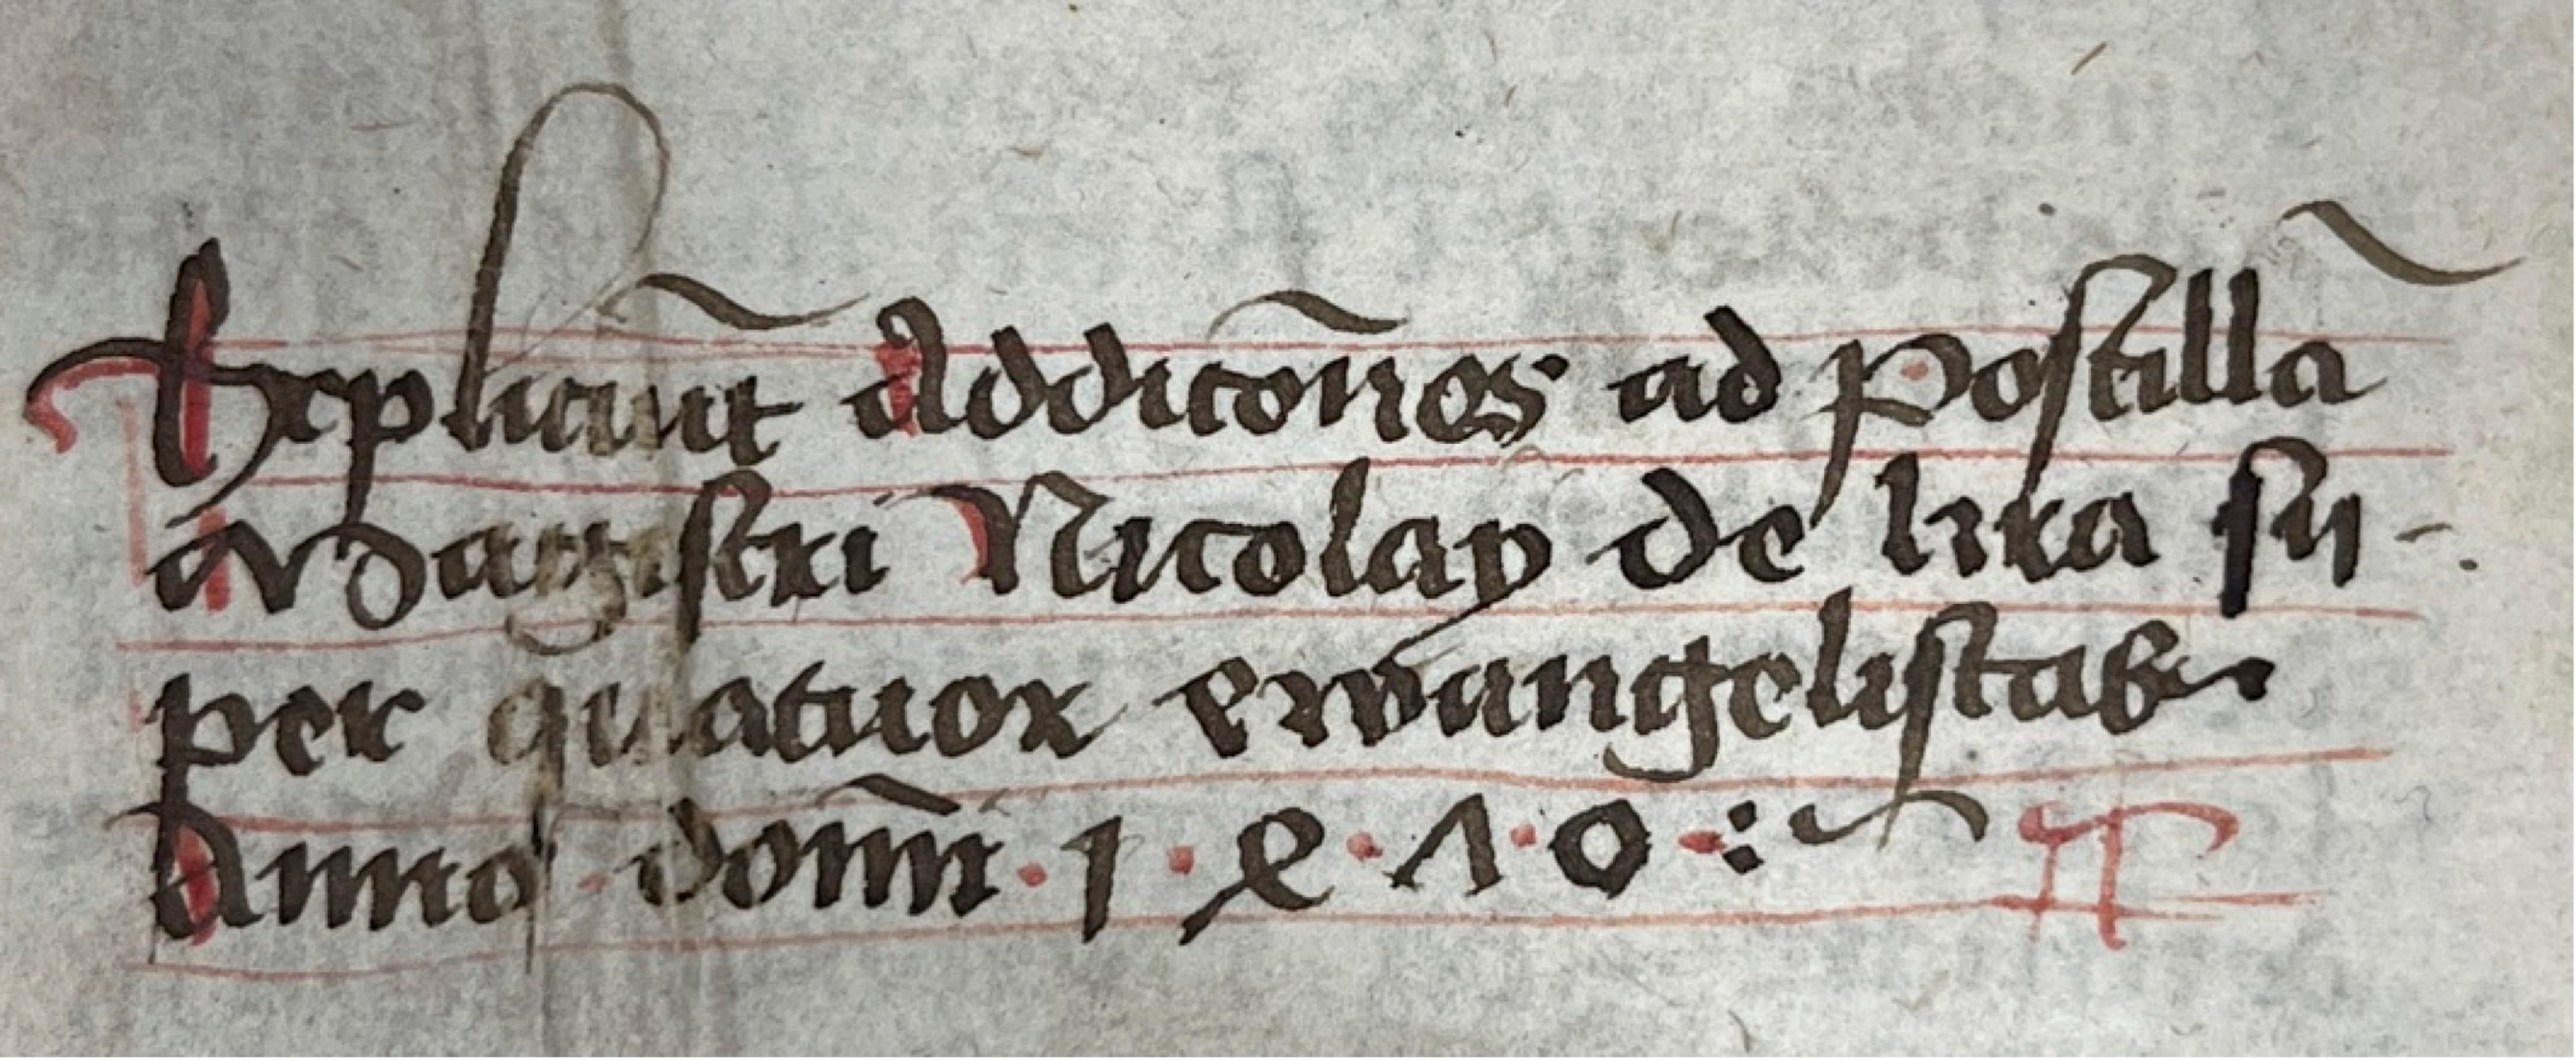 Expliciu̅t Addico̅nes ad Postilla̅
Magistri Nicolay de lira su-
per quatuor ewangelistas
Anno · dom̅i · 1 · 4 · 7 · 0 ·